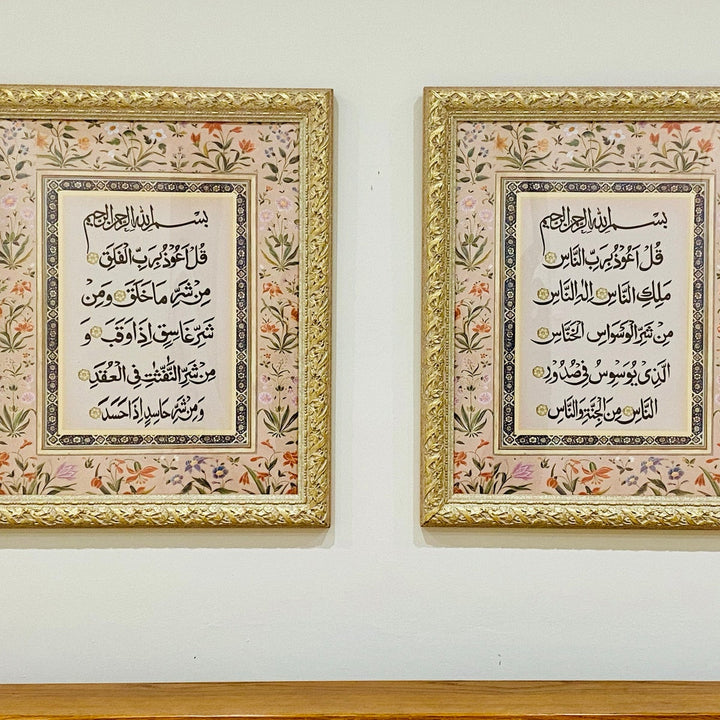 بسم الله الرحمن الرحيم
قُلْ اَعُوذُ بِرَبِّ الْفَلَقِ
مِنْ شَرِّ مَا خَلَقَ وَمِنْ
شَرِّ غَاسِقٍ اِذَا وَقَبَ وَ
مِنْ شَرِّ النَّفّٰثٰتِ فِى الْعُقَدِ
وَمِنْ شَرِّ حَاسِدٍ اِذَا حَسَدَ
بسم الله الرحمن الرحيم
قُلْ اَعُوذُ بِرَبِّ النَّاسِ
مَلِكِ النَّاسِ اِلٰهِ النَّاسِ
مِنْ شَرِّ الْوَسْوَاسِ الْخَنَّاسِ
الَّذِى يُوَسْوِسُ فِى صُدُورِ
النَّاسِ مِنَ الْجِنَّةِ وَالنَّاسِ